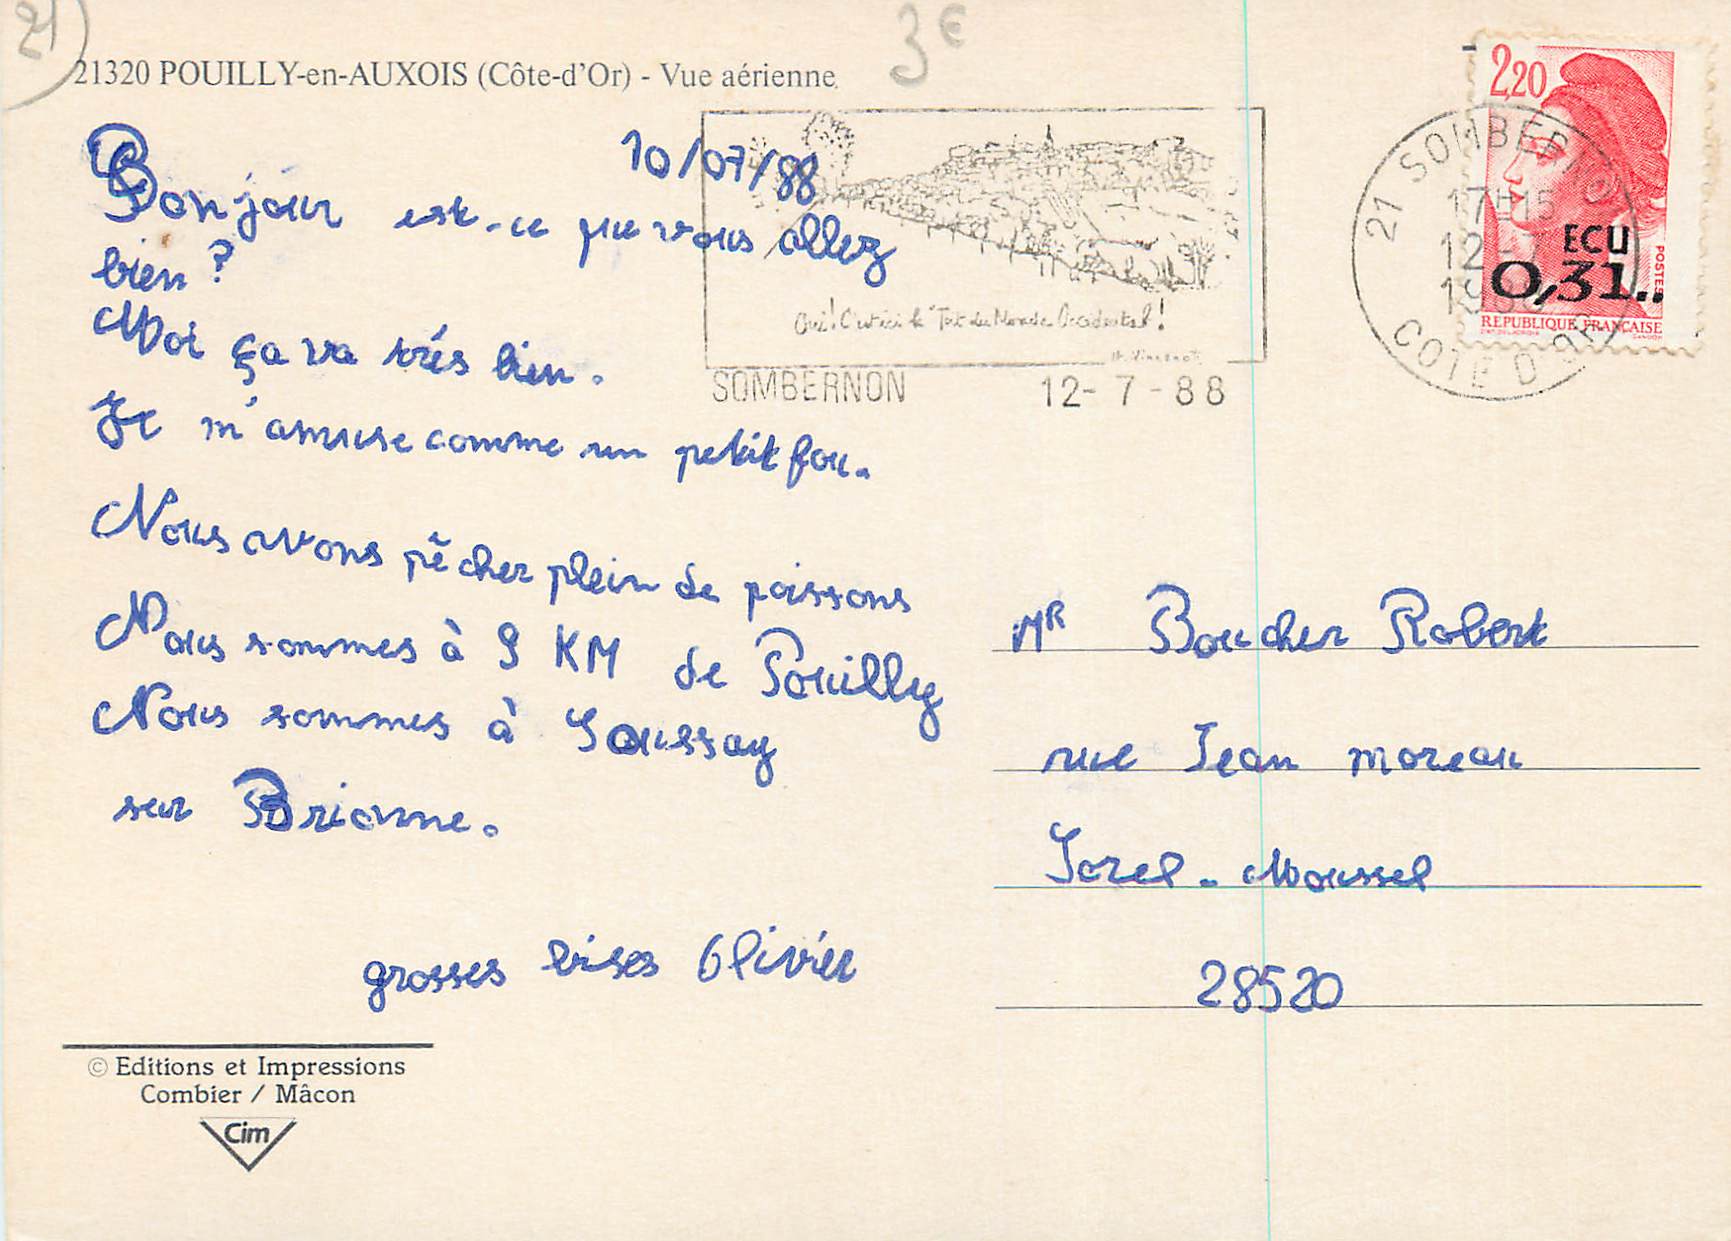 21
3€
21320 POUILLY-en-AUXOIS (Côte-d'Or) - Vue aérienne
10/07/88
Bonjour est-ce que vous allez
bien ?
Moi ça va très bien.
Je m'amuse comme un petit fou.
Nous avons pêcher plein de poissons
Nous sommes à 9 KM de Pouilly
Nous sommes à Soussay
sur Brionne.
grosses bises Olivier
© Editions et Impressions
Combier / Mâcon
Cim
Oui! C'est ici le "Toit du Monde Occidental!
H. Vincenot
SOMBERNON 12-7-88
21 SOMBERNON
17H15
12-7
19
COTE D'OR
2,20
ECU
0,31..
POSTES
REPUBLIQUE FRANÇAISE
GANDON
Mr Boucher Robert
rue Jean moreau
Sorel-Moussel
28520